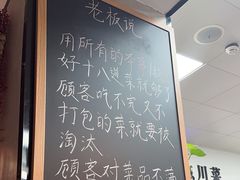 老板说
用所有的本事做
好十八道菜就够了
顾客吃不完又不
打包的菜就要被
淘汰
顾客对菜品不满
川菜